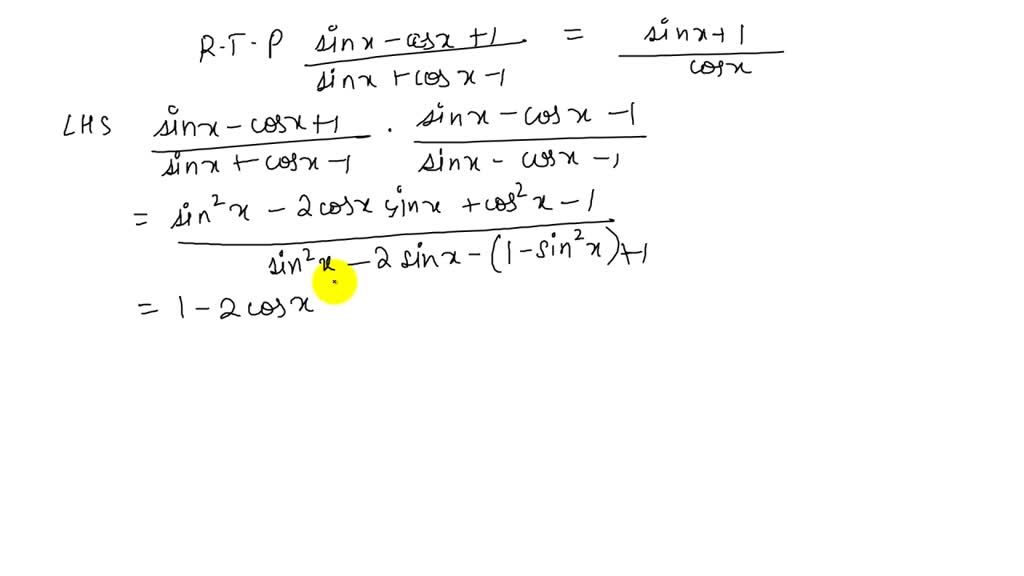 R.T.P (sinx - cosx + 1)/(sinx + cosx - 1) = (sinx + 1)/cosx
LHS (sinx - cosx + 1)/(sinx + cosx - 1) · (sinx - cosx - 1)/(sinx - cosx - 1)
= (sin²x - 2cosx sinx + cos²x - 1)/(sin²x - 2sinx - (1 - sin²x) + 1)
= 1 - 2cosx